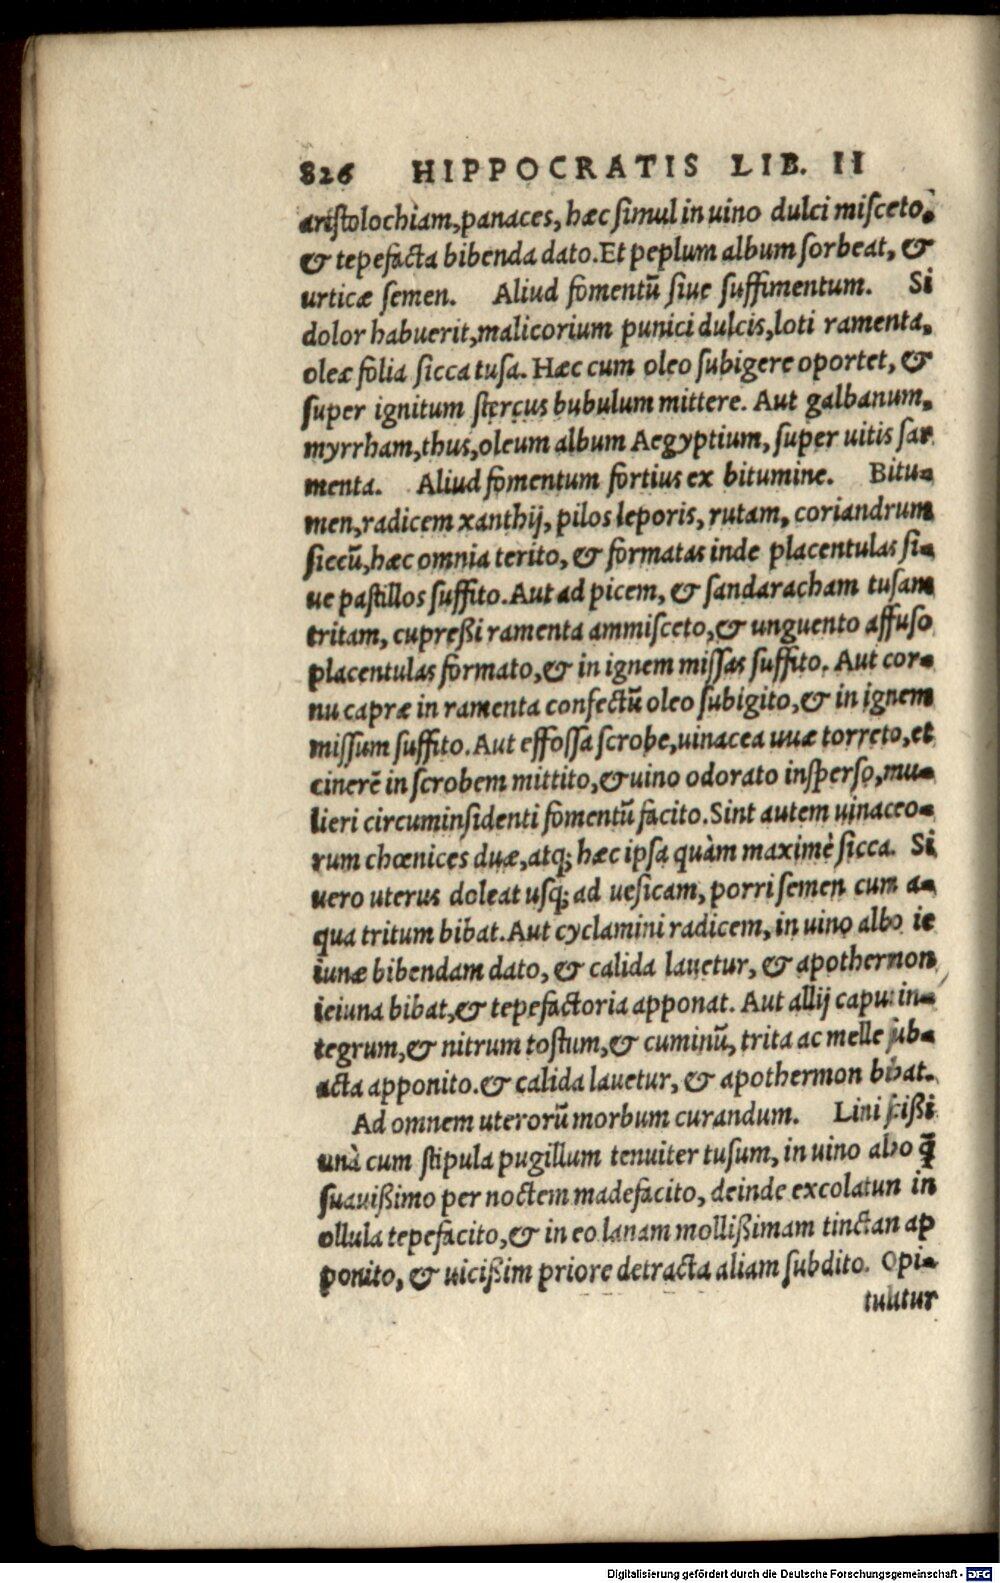 826 HIPPOCRATIS LIB. II
aristolochiam, panaces, hæc simul in uino dulci misceto,
& tepefacta bibenda dato. Et peplum album sorbeat, &
urticæ semen. Aliud fomentū siue suffimentum. Si
dolor habuerit, malicorium punici dulcis, loti ramenta,
oleæ folia sicca tusa. Hæc cum oleo subigere oportet, &
super ignitum stercus bubulum mittere. Aut galbanum,
myrrham, thus, oleum album Aegyptium, super uitis sar
menta. Aliud fomentum fortius ex bitumine. Bitu-
men, radicem xanthij, pilos leporis, rutam, coriandrum
siccū, hæc omnia terito, & formatas inde placentulas si-
ue pastillos suffito. Aut ad picem, & sandaracham tusam
tritam, cupreßi ramenta ammisceto, & unguento affuso
placentulas formato, & in ignem missas suffito. Aut cor-
nu capræ in ramenta confectū oleo subigito, & in ignem
missum suffito. Aut effossa scrobe, uinacea uuæ torreto, et
cinerē in scrobem mittito, & uino odorato insperso, mu-
lieri circuminsidenti fomentū facito. Sint autem uinaceo-
rum chœnices duæ, atq; hæc ipsa quàm maximè sicca. Si
uero uterus doleat usq; ad uesicam, porri semen cum a-
qua tritum bibat. Aut cyclamini radicem, in uino albo ie
iunæ bibendam dato, & calida lauetur, & apothermon
ieiuna bibat, & tepefactoria apponat. Aut allij caput in-
tegrum, & nitrum tostum, & cuminū, trita ac melle sub-
acta apponito. & calida lauetur, & apothermon bibat.
Ad omnem uterorū morbum curandum. Lini scißi
unà cum stipula pugillum tenuiter tusum, in uino albo q̄
suauißimo per noctem madefacito, deinde excolatum in
ollula tepefacito, & in eo lanam mollißimam tinctam ap
ponito, & uicißim priore detracta aliam subdito. Opi-
tulatur
Digitalisierung gefördert durch die Deutsche Forschungsgemeinschaft - DFG